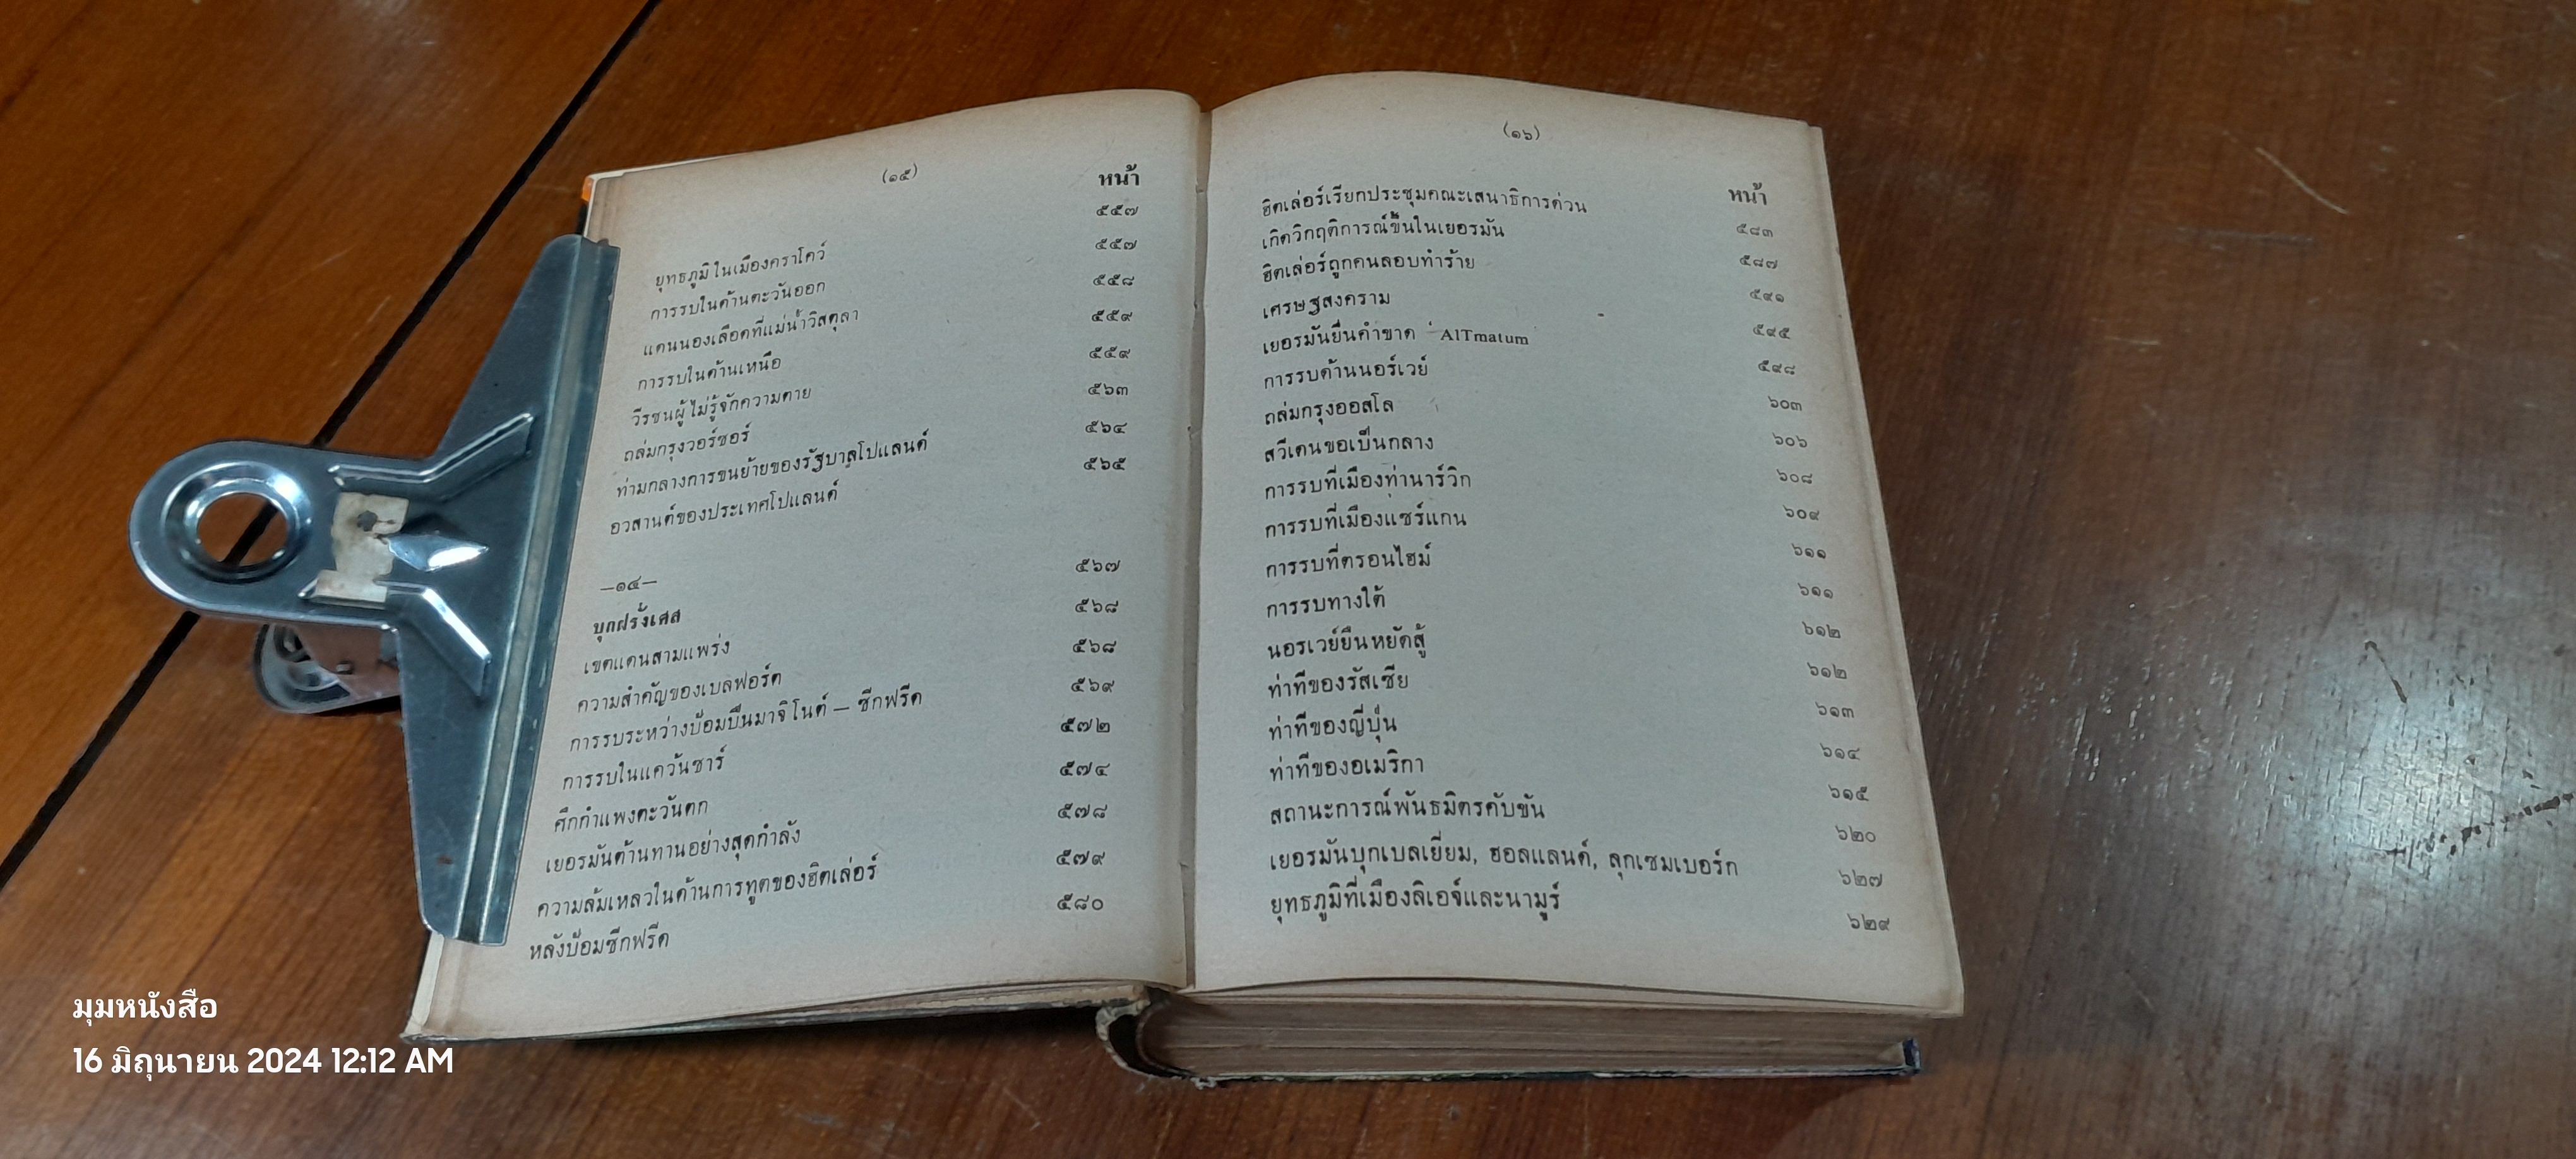 (๑๕)
หน้า
ยุทธภูมิในเมืองคราโคว์ ๕๕๗
การรบในด้านตะวันออก ๕๕๗
แดนนองเลือดที่แม่น้ำวิสตุลา ๕๕๘
การรบในด้านเหนือ ๕๕๙
วีรชนผู้ไม่รู้จักความตาย ๕๕๙
ถล่มกรุงวอร์ซอร์ ๕๖๓
ท่ามกลางการขนย้ายของรัฐบาลโปแลนด์ ๕๖๔
อวสานต์ของประเทศโปแลนด์ ๕๖๕
—๑๔—
บุกฝรั่งเศส ๕๖๗
เขตแดนสามแพร่ง ๕๖๘
ความสำคัญของเบลฟอร์ต ๕๖๘
การรบระหว่างป้อมปืนมาจิโนต์ — ซีกฟรีด ๕๖๙
การรบในแคว้นซาร์ ๕๗๒
ศึกกำแพงตะวันตก ๕๗๔
เยอรมันต้านทานอย่างสุดกำลัง ๕๗๘
ความล้มเหลวในด้านการทูตของฮิตเล่อร์ ๕๗๙
หลังป้อมซีกฟรีด ๕๘๐
(๑๖)
หน้า
ฮิตเล่อร์เรียกประชุมคณะเสนาธิการด่วน ๕๘๓
เกิดวิกฤติการณ์ขึ้นในเยอรมัน ๕๘๗
ฮิตเล่อร์ถูกคนลอบทำร้าย ๕๙๑
เศรษฐสงคราม ๕๙๕
เยอรมันยื่นคำขาด ' AlTmatum ' ๕๙๘
การรบด้านนอร์เวย์ ๖๐๓
ถล่มกรุงออสโล ๖๐๖
สวีเดนขอเป็นกลาง ๖๐๘
การรบที่เมืองท่านาร์วิก ๖๐๙
การรบที่เมืองแซร์แกน ๖๑๑
การรบที่ตรอนไฮม์ ๖๑๑
การรบทางใต้ ๖๑๒
นอรเวย์ยืนหยัดสู้ ๖๑๒
ท่าทีของรัสเซีย ๖๑๓
ท่าทีของญี่ปุ่น ๖๑๔
ท่าทีของอเมริกา ๖๑๕
สถานะการณ์พันธมิตรคับขัน ๖๒๐
เยอรมันบุกเบลเยี่ยม, ฮอลแลนด์, ลุกเซมเบอร์ก ๖๒๗
ยุทธภูมิที่เมืองลิเอจ์และนามูร์ ๖๒๙
มุมหนังสือ
16 มิถุนายน 2024 12:12 AM